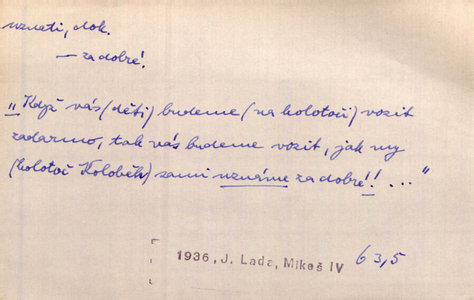 uznati, dok.
— za dobré!
„Když vás (děti) budeme (na kolotoči) vozit
zadarmo, tak vás budeme vozit, jak my
(kolotoč Koloběh) sami uznáme za dobré!! ..."
1936, J. Lada, Mikeš IV 63,5